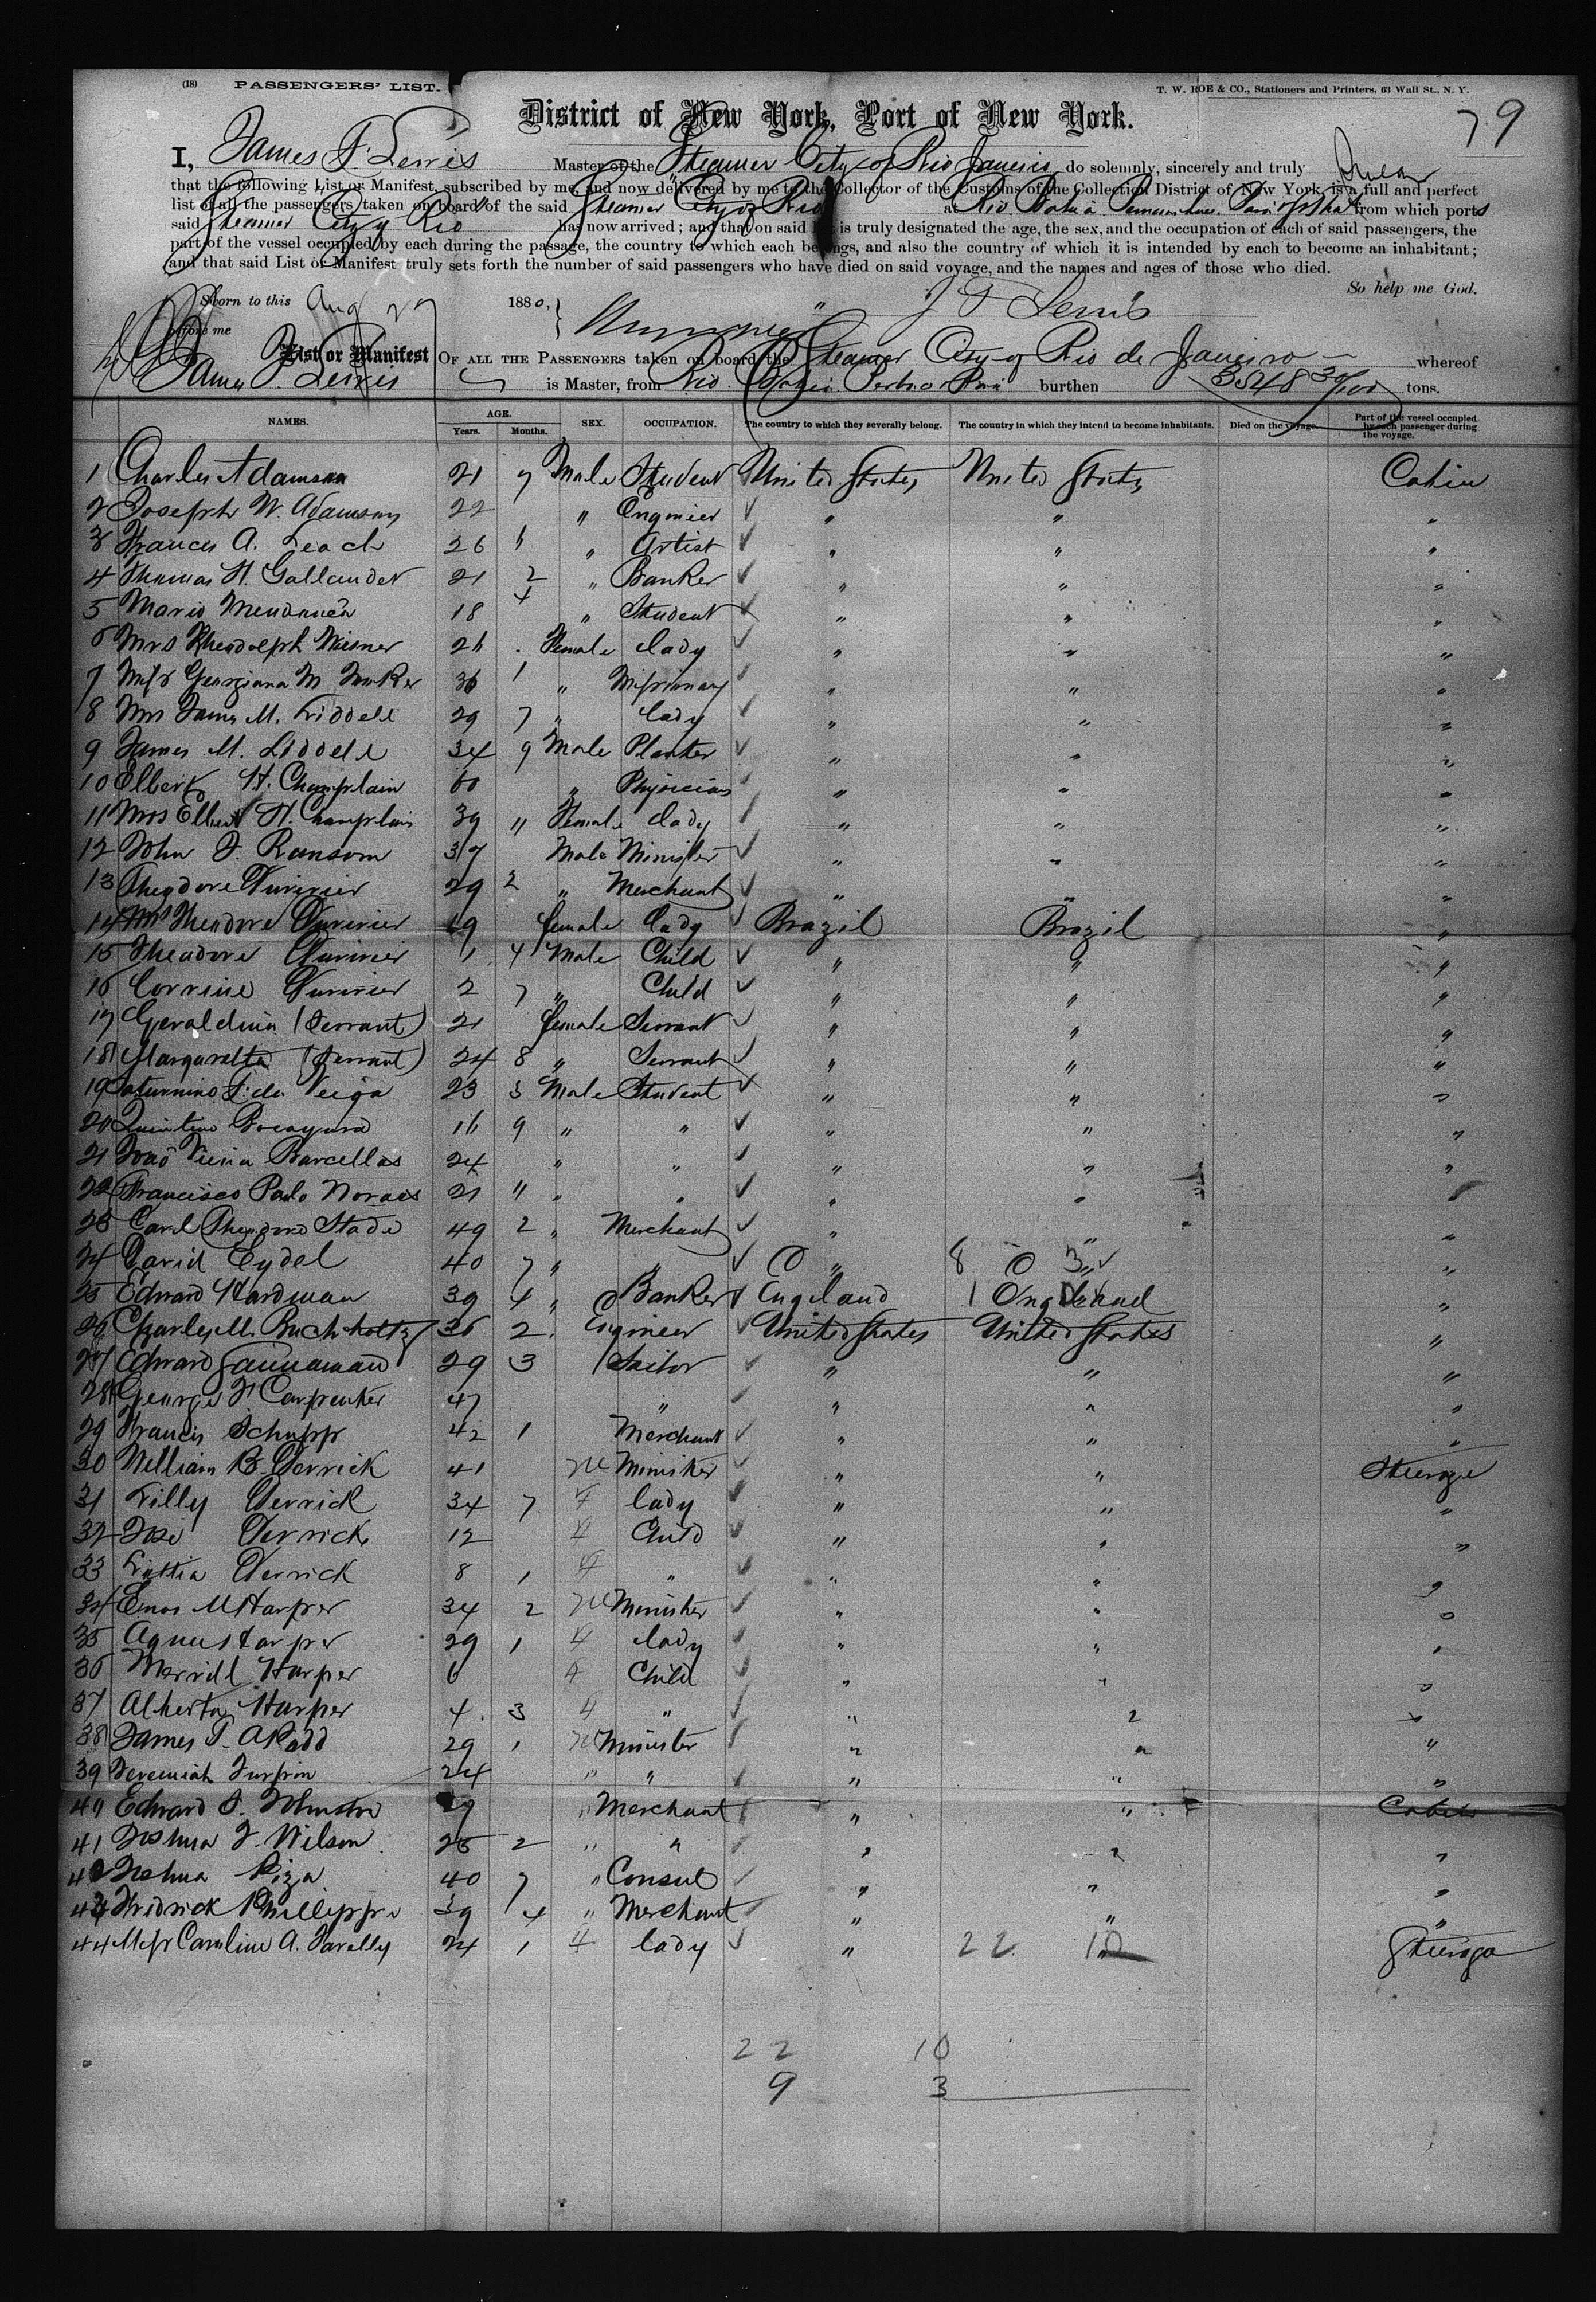 (18) PASSENGERS' LIST.
T. W. ROE & CO., Stationers and Printers, 63 Wall St., N. Y.
79
District of New York, Port of New York.
I, James F. Lewis Master of the Steamer "City of Rio Janeiro do solemnly, sincerely and truly swear
that the following List or Manifest, subscribed by me, and now delivered by me to the Collector of the Customs of the Collection District of New York, is a full and perfect
list of all the passengers taken on board of the said Steamer City of Rio at Rio Bahia from which ports
said Steamer "City of Rio" has now arrived; and that on said list is truly designated the age, the sex, and the occupation of each of said passengers, the
part of the vessel occupied by each during the passage, the country to which each belongs, and also the country of which it is intended by each to become an inhabitant;
and that said List or Manifest truly sets forth the number of said passengers who have died on said voyage, and the names and ages of those who died.
So help me God.
Sworn to this Aug 27 1880, J F Lewis
before me
List or Manifest OF ALL THE PASSENGERS taken on board the Steamer City of Rio de Janeiro whereof
James F. Lewis is Master, from Rio Bahia burthen 3548 30/100 tons.
NAMES. AGE. Years. Months. SEX. OCCUPATION. The country to which they severally belong. The country in which they intend to become inhabitants. Died on the voyage. Part of the vessel occupied by each passenger during the voyage.
1 Charles Adamson 21 7 Male Student United States United States Cabin
2 Joseph W. Adamson 22 " Engineer " " "
3 Francis A. Leach 26 " Artist " " "
4 Thomas H. Gallaudet 21 2 " Banker " " "
5 Mario 18 4 " Student " " "
6 Mrs 26 Female Lady " " "
7 Miss Georgiana M 36 1 " Missionary " " "
8 Mrs James M. Liddell 29 7 " Lady " " "
9 James M. Liddell 34 9 Male Planter " " "
10 Elbert H. Champlain 60 " Physician " " "
11 Mrs Elbert H. Champlain 39 11 Female Lady " " "
12 John J. Ransom 37 Male Minister " " "
13 Theodore Duvivier 29 2 " Merchant " " "
14 Mrs Theodore Duvivier 19 female Lady Brazil Brazil "
15 Theodore Duvivier 1 4 Male Child " " "
16 Corrine Duvivier 2 7 " Child " " "
17 Geraldina (Servant) 21 female Servant " " "
18 Margaretta (Servant) 24 8 " Servant " " "
19 Saturnino F. da Veiga 23 3 Male Student " " "
20 Quintino Bocayuva 16 9 " " " " "
21 Joao Vieira Barcellas 24 " " " " "
22 Francisco Paulo Noraes 21 11 " " " "
23 Carl Theodore Stade 49 2 " Merchant " " "
24 David Eydel 40 7 " " " 8 3 " "
25 Edward Hardman 39 4 " Banker England 1 England "
26 Charles M. Buchholtz 36 2 Engineer United States United States "
27 Edward 29 3 Sailor " " "
28 George F Carpenter 47 " " " "
29 Francis Schupp 42 1 Merchant " " "
30 William B. Derrick 41 M Minister " " Steerage
31 Lilly Derrick 34 7 F lady " " "
32 Derrick 12 F Child " " "
33 Derrick 8 1 F " " " "
34 Enos M Harper 34 2 M Minister " " "
35 Agnes Harper 29 1 F lady " " "
36 Merrill Harper 6 F Child " " "
37 Alberta Harper 4 3 F " " " "
38 James T. 29 1 M Minister " " "
39 Jeremiah Turpin 24 " " " " "
40 Edward S. 29 " Merchant " " Cabin
41 Joshua J. Wilson 25 2 " " " " "
42 Joshua Piza 40 7 " Consul " " "
43 39 4 " Merchant " " "
44 Miss Caroline A. 24 1 F lady " 22 10 Steerage
22 10
9 3